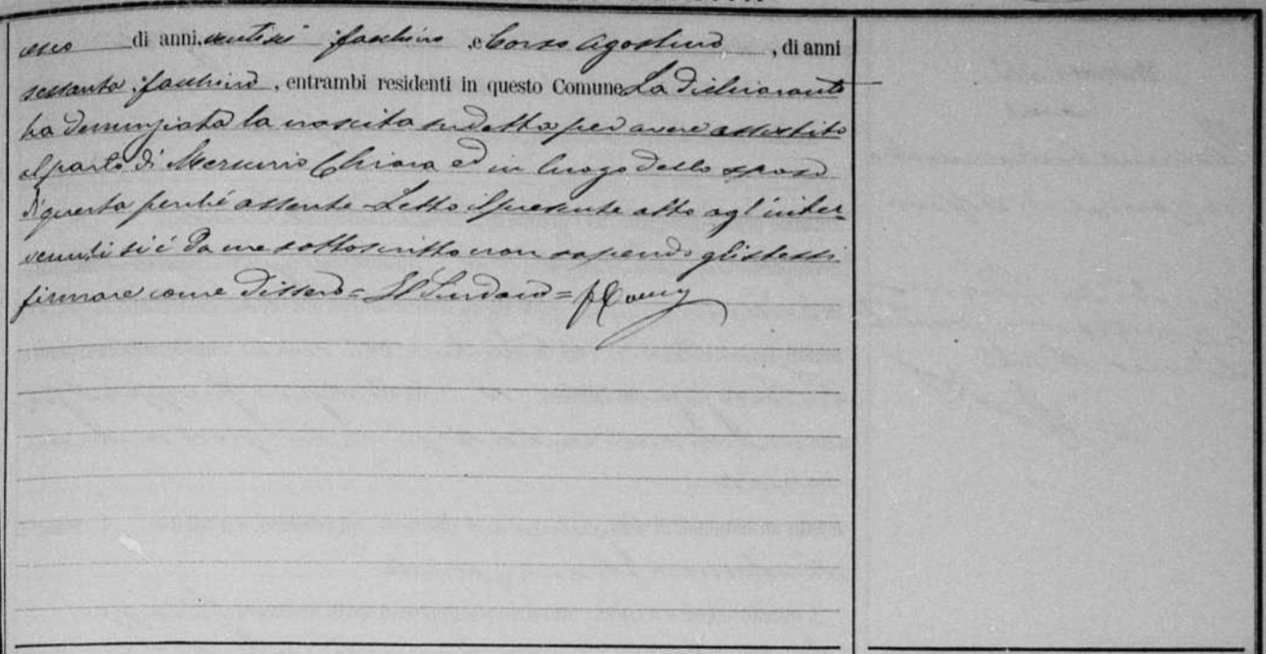 di anni ventisei facchino e Corso Agostino, di anni
sessanta facchino, entrambi residenti in questo Comune La dichiarante
ha denunziata la nascita sudetta per avere assistito
al parto di Mercurio Chiara ed in luogo dello sposo
di questa perché assente - Letto il presente atto agl'inter-
venuti si è da me sottoscritto non sapendo gli stessi
firmare come dissero = Il Sindaco =